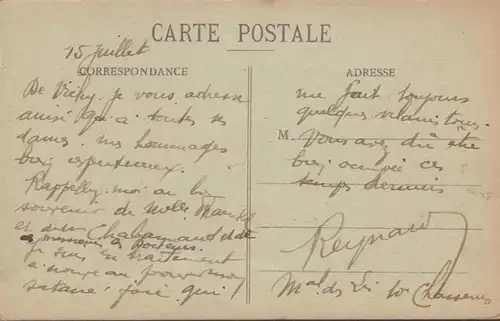 CARTE POSTALE
15 juillet
CORRESPONDANCE
De Vichy je vous adresse
ainsi qu'à toutes ses
dames mes hommages
bien respectueux.
Rappelez-moi au bon
souvenir de Melle
et
Je suis en traitement
à nouveau pour mon
satané foie qui
ADRESSE
me fait toujours
quelques vilains tours.
M. Vous avez dû être
bien occupé ces
temps derniers
Reynaud
Mal des Lis 10e Chasseurs